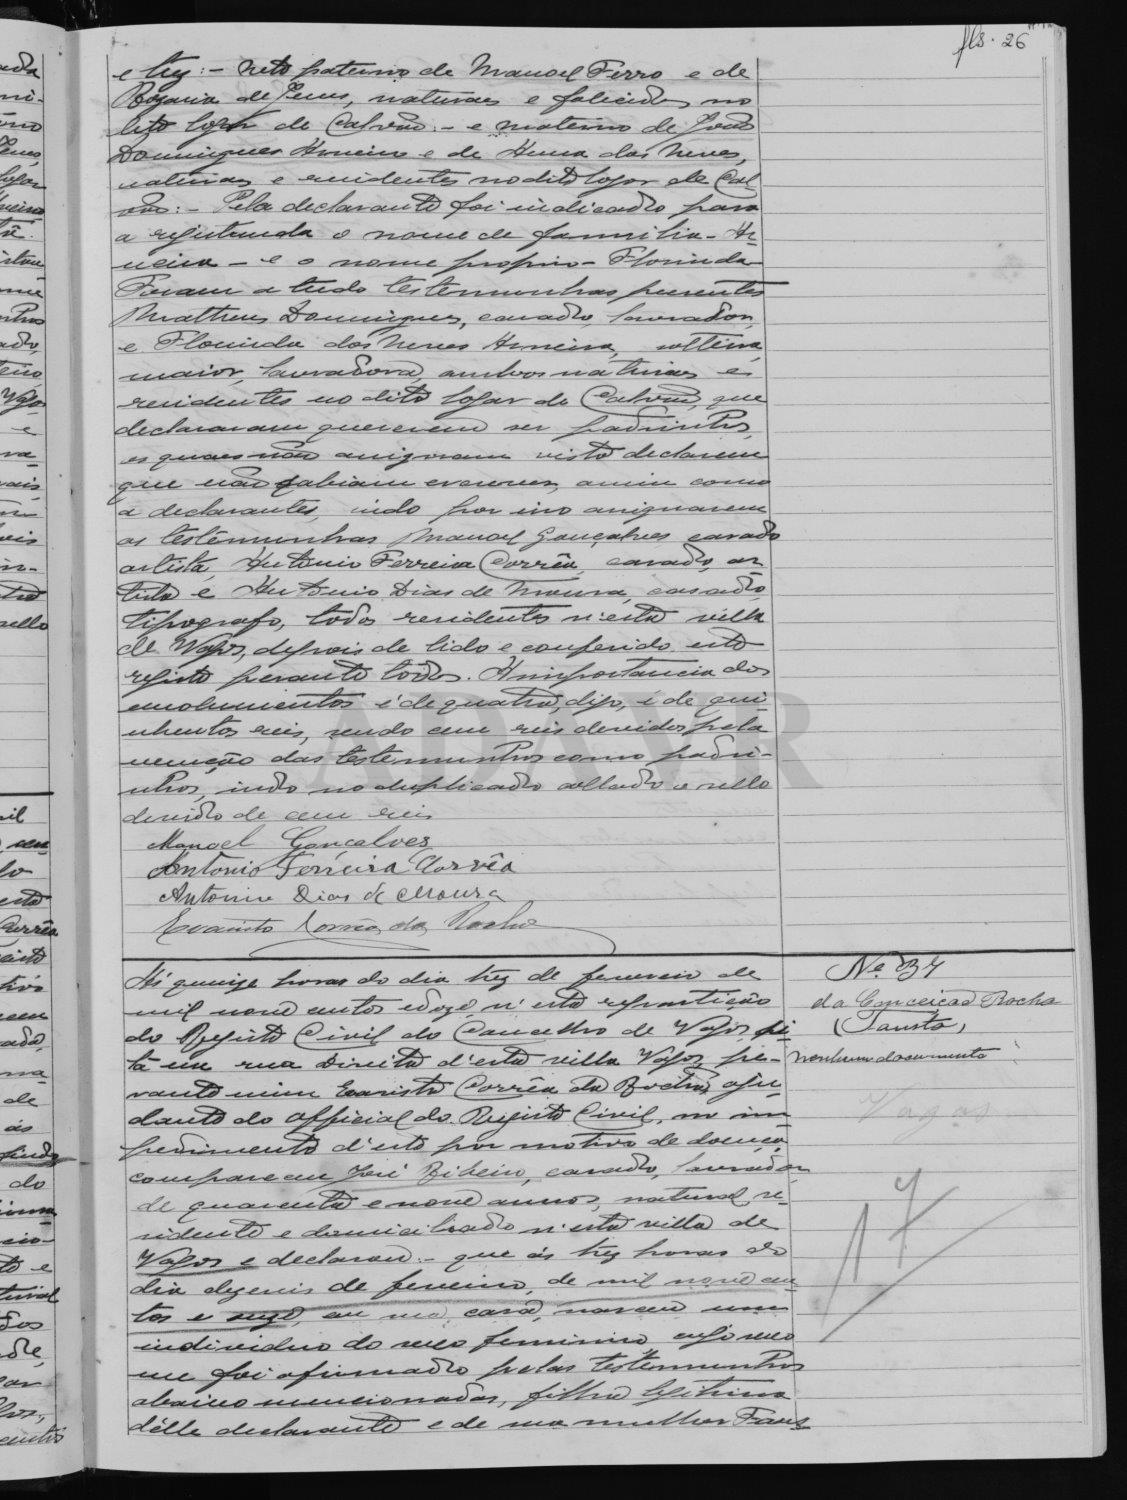 fls. 26
e trez:- Neto paterno de Manoel Ferro e de
Rozaria de Jesus, naturaes e falecidos no
dito logar de Calvão:- e materno de João
Domingues Arneiro e de Anna das Neves,
naturaes e residentes no dito logar de Cal
vão:- Pela declarante foi indicado para
a registranda o nome de familia- Ar-
neira - e o nome proprio- Florinda
Foram a tudo testemunhas presentes
Matheus Domingues, casado, lavrador,
e Florinda das Neves Arneira, solteira,
maior, lavradora, ambos naturaes e
residentes no dito logar de Calvão, que
declararam quererem ser padrinhos,
os quaes não assignaram visto declararem
que não sabiam escrever, assim como
a declarante, indo por isso assignarem
as testemunhas Manoel Gonçalves casado
artista, Antonio Ferreira Corrêa, casado, ar
tista e Antonio Dias de Moura, casado,
tipografo, todos residentes n'esta villa
de Vagos, depois de lido e conferido este
registo perante todos. A importancia dos
emolumentos é de quatro, digo, é de qui-
nhentos reis, sendo cem reis devidos pela
menção das testemunhas como padri-
nhos, indo no duplicado collado o sello
devido de cem reis
Manoel Gonçalves
Antonio Ferreira Corrêa
Antonio Dias de Moura
Evaristo Corrêa da Rocha
Nº 37
da Conceição Rocha
(Fausta)
nenhum documento
Vagos
17
Ás quinze horas do dia trez de fevereiro de
mil nove centos e doze, n'esta repartição
do Registo Civil do Concelho de Vagos, si-
ta na rua Direita d'esta villa Vagos, pe-
rante mim Evaristo Corrêa da Rocha, aju-
dante do official do Registo Civil, no im-
pedimento d'este por motivo de doença,
compareceu José Ribeiro, casado, lavrador
de quarenta e nove annos, natural, re-
sidente e domiciliado n'esta villa de
Vagos e declarou:- que ás trez horas do
dia dezeseis de fevereiro, de mil nove cen
tos e onze, em sua casa, nasceu um
individuo do sexo feminino, cujo sexo
me foi afirmado pelas testemunhas
abaixo mencionadas, filha legitima
d'elle declarante e de sua mulher Faus
ADAVR